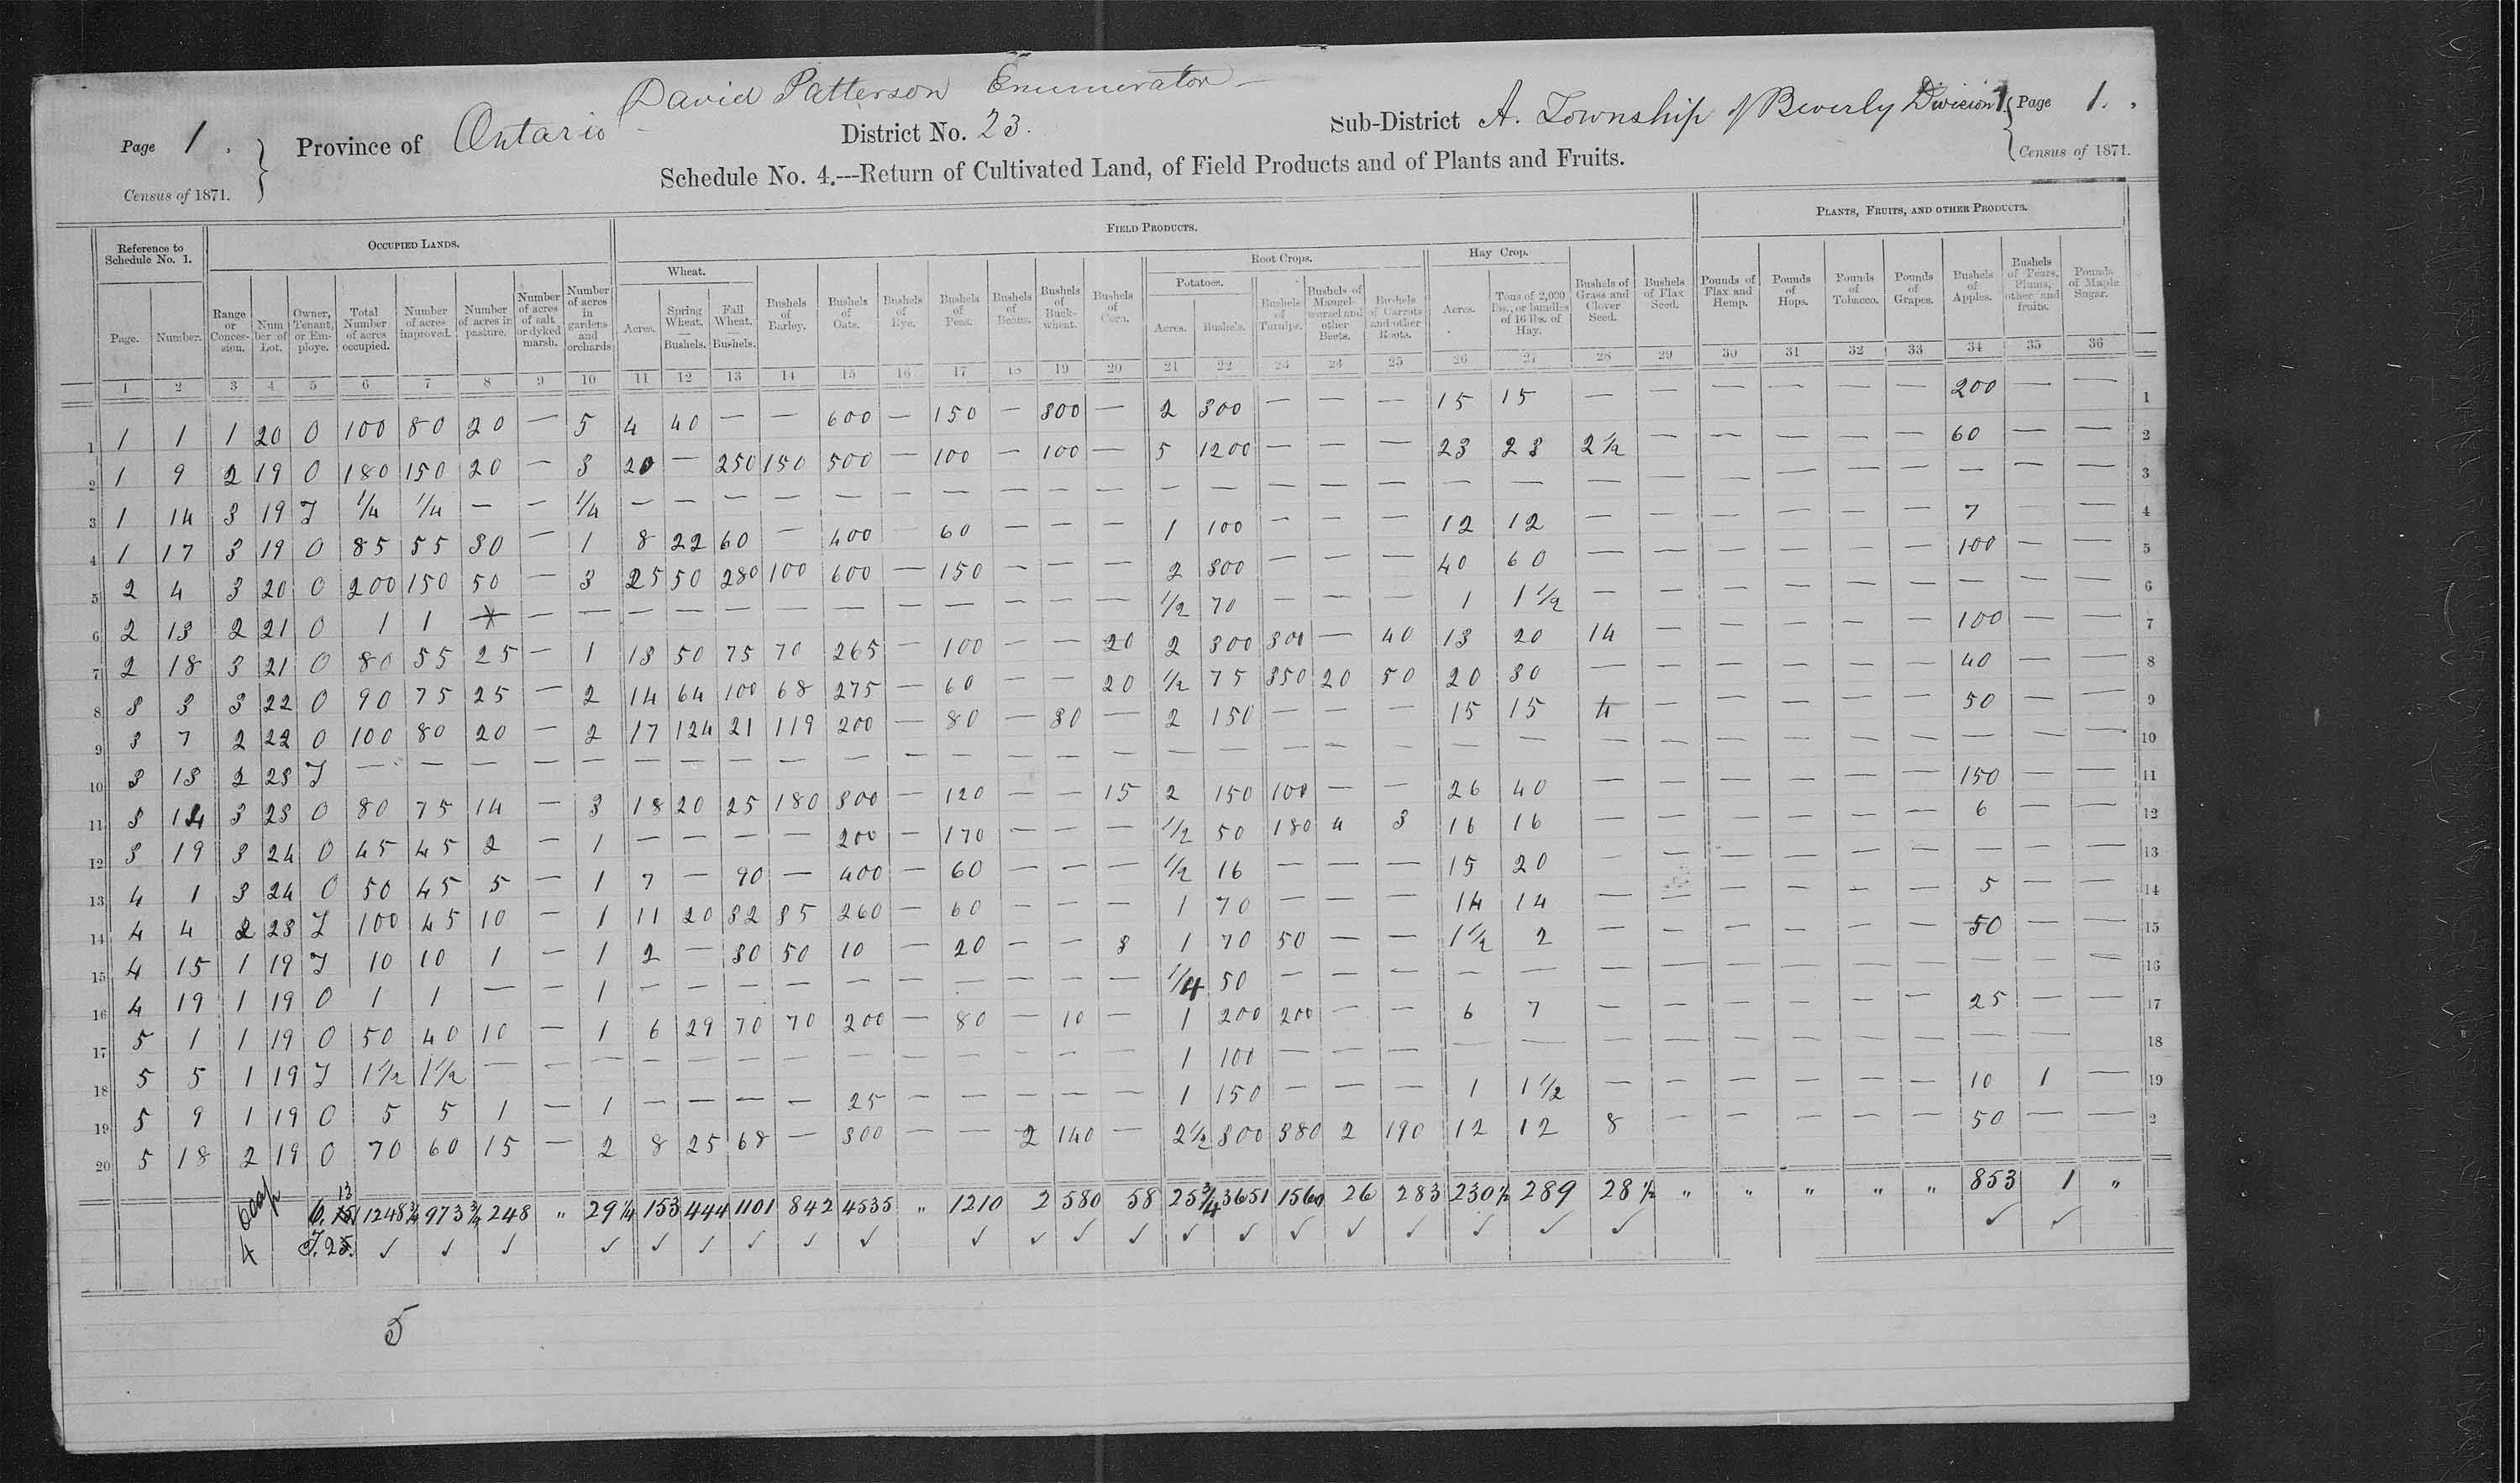 David Patterson Enumerator
Page 1. Province of Ontario District No. 23. Sub-District A. Township of Beverly Division 1. Page 1.
Census of 1871. Census of 1871.
Schedule No. 4.---Return of Cultivated Land, of Field Products and of Plants and Fruits.
Reference to Schedule No. 1. OCCUPIED LANDS. FIELD PRODUCTS. PLANTS, FRUITS, AND OTHER PRODUCTS.
Wheat. Root Crops. Hay Crop.
Potatoes.
Page. Number. Range or Conces-sion. Num ber of Lot. Owner, Tenant, or Em-ploye. Total Number of acres occupied. Number of acres improved. Number of acres in pasture. Number of acres of salt or dyked marsh. Number of acres in gardens and orchards Acres. Spring Wheat. Bushels. Fall Wheat. Bushels. Bushels of Barley. Bushels of Oats. Bushels of Rye. Bushels of Peas. Bushels of Beans. Bushels of Buck-wheat. Bushels of Corn. Acres. Bushels. Bushels of Turnips. Bushels of Mangel-wurzel and other Beets. Bushels of Carrots and other Roots. Acres. Tons of 2,000 lbs., or bundles of 16 lbs. of Hay. Bushels of Grass and Clover Seed. Bushels of Flax Seed. Pounds of Flax and Hemp. Pounds of Hops. Pounds of Tobacco. Pounds of Grapes. Bushels of Apples. Bushels of Pears, Plums, other and fruits. Pounds of Maple Sugar.
1 2 3 4 5 6 7 8 9 10 11 12 13 14 15 16 17 18 19 20 21 22 23 24 25 26 27 28 29 30 31 32 33 34 35 36
1 1 1 1 20 O 100 80 20 — 5 4 40 — — 600 — 150 — 300 — 2 300 — — — 15 15 — — — — — — 200 — — 1
2 1 9 2 19 O 180 150 20 — 3 20 — 250 150 500 — 100 — 100 — 5 1200 — — — 23 23 2½ — — — — — 60 — — 2
3 1 14 3 19 T ¼ ¼ — — ¼ — — — — — — — — — — — — — — — — — — — — — — — — — — 3
4 1 17 3 19 O 85 55 30 — 1 8 22 60 — 400 60 — — — 1 100 — — — 12 12 — — — — — — 7 — — 4
5 2 4 3 20 O 200 150 50 — 3 25 50 280 100 600 — 150 — — — 2 300 — — — 40 60 — — — — — — 100 — — 5
6 2 13 2 21 O 1 1 — — — — — — — — — — — — ½ 70 — — — 1 1½ — — — — — — — — — 6
7 2 18 3 21 O 80 55 25 — 1 13 50 75 70 265 — 100 — — 20 2 300 300 — 40 13 20 14 — — — — — 100 — — 7
8 3 3 3 22 O 90 75 25 — 2 14 64 100 68 275 — 60 — — 20 ½ 75 350 20 50 20 30 — — — — — — 40 — — 8
9 3 7 2 22 O 100 80 20 — 2 17 124 21 119 200 — 80 — 30 — 2 150 — — — 15 15 4 — — — — — 50 — — 9
10 3 13 2 23 T — — — — — — — — — — — — — — — — — — — — — — — — — — — — — — — 10
11 3 14 3 23 O 80 75 14 — 3 18 20 25 180 300 — 120 — — 15 2 150 100 — — 26 40 — — — — — — 150 — — 11
12 3 19 3 24 O 45 45 2 — 1 — — — — 200 — 170 — — — ½ 50 180 4 3 16 16 — — — — — — 6 — — 12
13 4 1 3 24 O 50 45 5 — 1 7 — 90 — 400 — 60 — — — ½ 16 — — — 15 20 — — — — — — — — — 13
14 4 4 2 23 T 100 45 10 — 1 11 20 32 35 260 — 60 — — — 1 70 — — — 14 14 — — — — — — 5 — — 14
15 4 15 1 19 T 10 10 1 — 1 2 — 30 50 10 — 20 — — 3 1 70 50 — — 1½ 2 — — — — — — 50 — — 15
16 4 19 1 19 O 1 1 — — 1 — — — — — — — — — — ¼ 50 — — — — — — — — — — — — — — 16
17 5 1 1 19 O 50 40 10 — 1 6 29 70 70 200 — 80 — 10 — 1 200 200 — — 6 7 — — — — — — 25 — — 17
18 5 5 1 19 T 1½ 1½ — — — — — — — — — — — — — 1 100 — — — — — — — — — — — — — — 18
19 5 9 1 19 O 5 5 1 — 1 — — — — 25 — — — — — 1 150 — — — 1 1½ — — — — — — 10 1 — 19
20 5 18 2 19 O 70 60 15 — 2 8 25 68 — 300 — — 2 140 — 2½ 300 380 2 190 12 12 8 — — — — — 50 — — 2
O. 13 1248¾ 973¾ 248 " 29¼ 153 444 1101 842 4535 " 1210 2 580 58 25¾ 3651 1560 26 283 230½ 289 28½ " " " " " 853 1 "
4
5